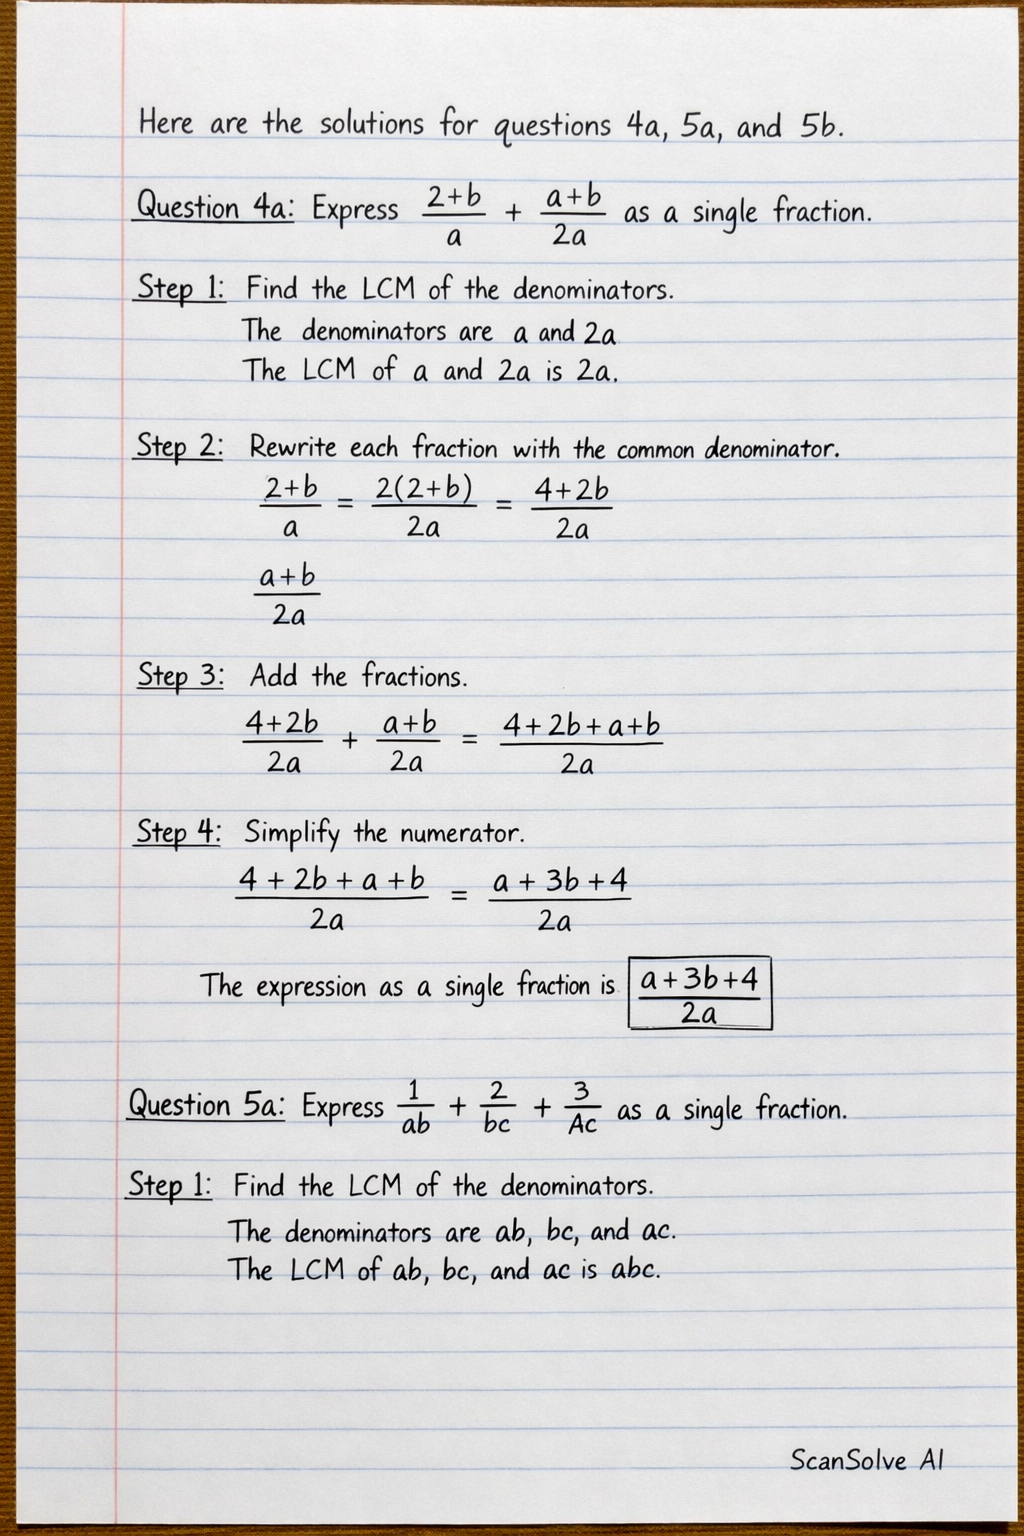 Here are the solutions for questions 4a, 5a, and 5b.
Question 4a: Express (2+b)/a + (a+b)/2a as a single fraction.
Step 1: Find the LCM of the denominators.
The denominators are a and 2a
The LCM of a and 2a is 2a.
Step 2: Rewrite each fraction with the common denominator.
(2+b)/a = 2(2+b)/2a = (4+2b)/2a
(a+b)/2a
Step 3: Add the fractions.
(4+2b)/2a + (a+b)/2a = (4+2b+a+b)/2a
Step 4: Simplify the numerator.
(4 + 2b + a + b)/2a = (a + 3b + 4)/2a
The expression as a single fraction is (a+3b+4)/2a
Question 5a: Express 1/ab + 2/bc + 3/Ac as a single fraction.
Step 1: Find the LCM of the denominators.
The denominators are ab, bc, and ac.
The LCM of ab, bc, and ac is abc.
ScanSolve AI